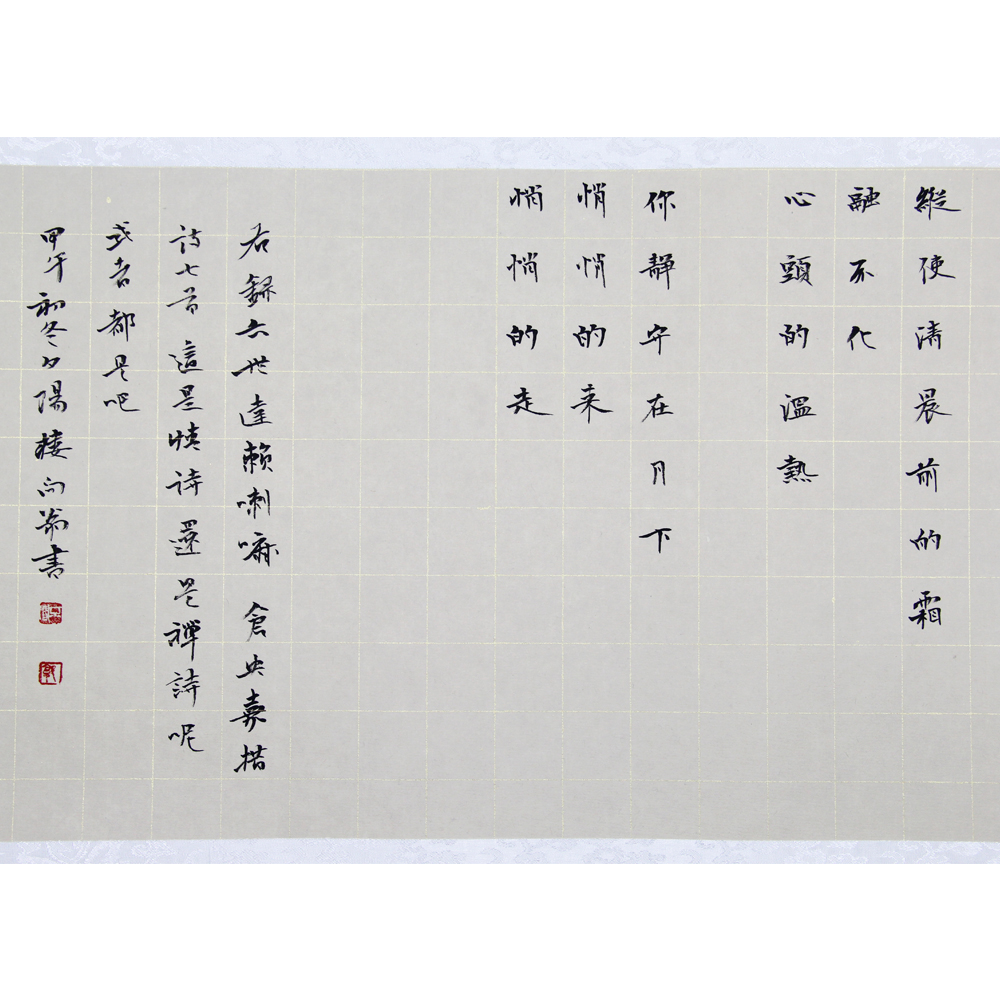 縱使清晨前的霜
融不化
心頭的溫熱
你靜守在月下
悄悄的来
悄悄的走
右録六世達賴喇嘛 倉央嘉措
詩七首 這是情詩還是禪詩呢
或者都是吧
甲午初冬夕陽樓向翁書